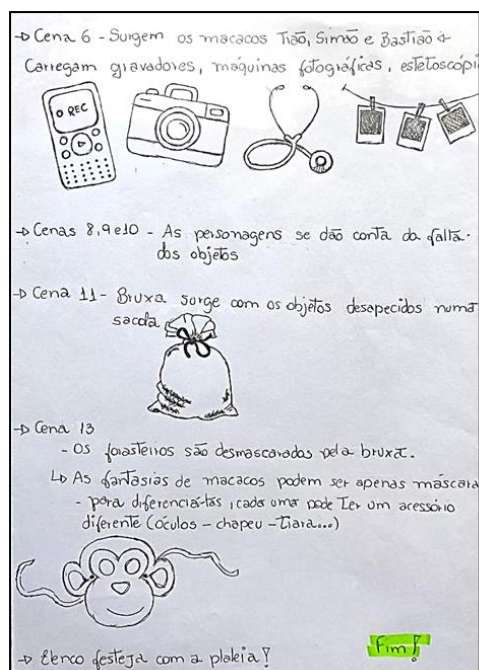 → Cena 6 - Surgem os macacos Tião, Simão e Bastião ←
Carregam gravadores, máquinas fotográficas, estetoscópi
REC
→ Cenas 8,9e10 - As personagens se dão conta da falta
dos objetos
→ Cena 11 - Bruxa surge com os objetos desapecidos numa
sacola
→ Cena 13
- Os forasteiros são desmascarados pela bruxa.
↳ As fantasias de macacos podem ser apenas máscara
- para diferenciá-las, cada uma pode ter um acessório
diferente (óculos - chapeu - tiara...)
→ Elenco festeja com a plateia!
Fim!